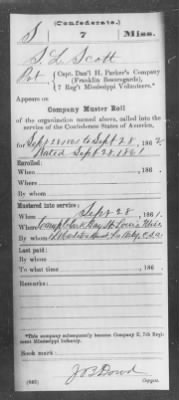 (Confederate.)
S 7 Miss.
S. L. Scott
Pvt Capt. Dan'l H. Parker's Company
(Franklin Beauregards),
7 Reg't Mississippi Volunteers.*
Appears on
Company Muster Roll
of the organization named above, called into the
service of the Confederate States of America,
for Sept 28 1861 to Sept 28, 186
Dated Sept 28 1861
Enrolled:
When , 186 .
Where
Mustered into service:
When Sept 28, 1861.
Where Camp Bay St Louis Miss
By whom C.S.A.
Last paid:
By whom
To what time , 186 .
Remarks:
*This company subsequently became Company E, 7th Regiment Mississippi Infantry.
Book mark:
(642) J B Dowd
Copyist.